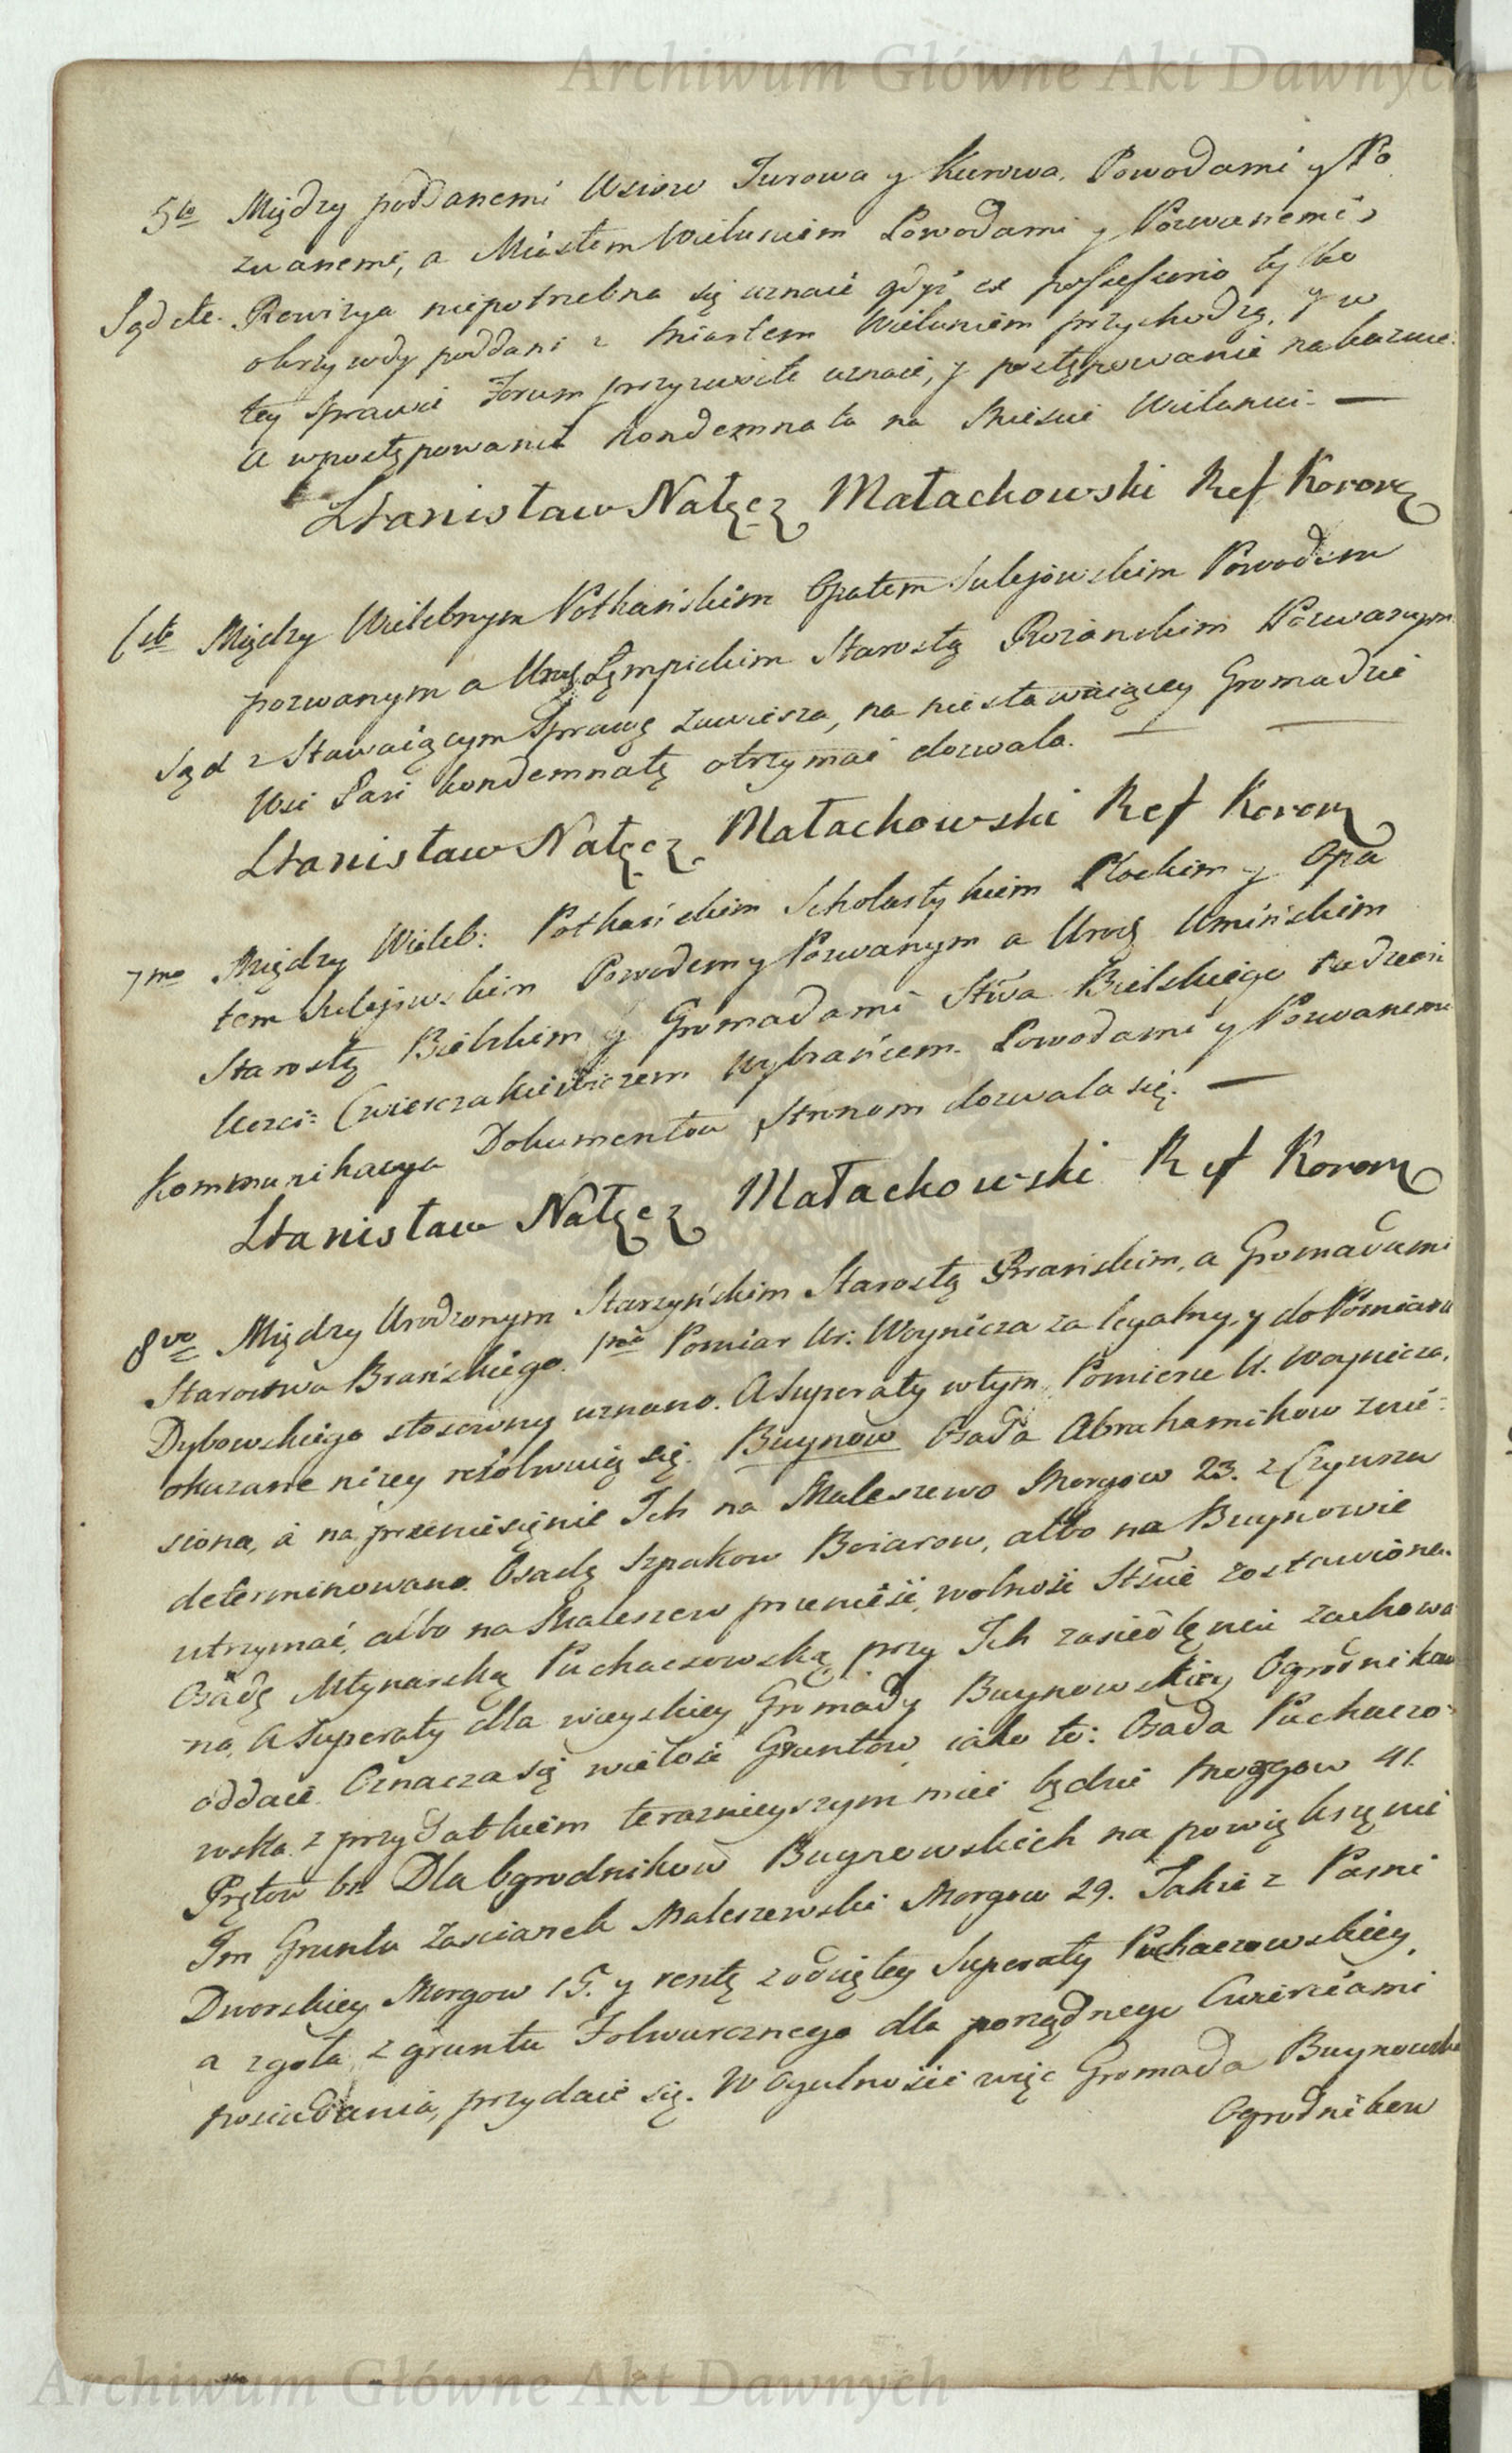 Archiwum Główne Akt Dawnych
5to Między poddanemi Wsiow Turowa y Kurowa. Powodami y Po
zwanemi, a Miastem Wieluniem Powodami y Pozwanemi,
Sąd etc. Rewizya niepotrzebna się uznaie gdyż ex possessorio tylko
o krzywdy poddani z Miastem Wieluniem przychodzą, y w
tey sprawie Forum przyzwoite uznaie, y postępowanie nakazuie.
a w postępowaniu kondemnata na Mieście Wieluniu. —
Stanisław Nałęcz Małachowski Ref Koronny
6te Między Wielebnym Potkańskim Opatem Sulejowskim Powodem
pozwanym a Urodz Lempickim Starostą Rożanskim Pozwanym
Sąd z Stawaiącym Sprawę zawiesza, na niestawaiącey Gromadzie
Wsi Pasi kondemnatę otrzymać dozwala. —
Stanisław Nałęcz Małachowski Ref Koronny
7mo Między Wieleb: Potkańskim Scholastykiem Płockim y Opa
tem Sulejowskim Powodem y Pozwanym a Urodz Umińskim
Starostą Bielskim y Gromadami Stwa Bielskiego tudzież
Cwierczakiewiczem Wybrańcem Powodami y Pozwanemi
kommunikacya Dokumentow Stronom dozwala się. —
Stanisław Nałęcz Małachowski Ref Koronny
8vo Między Urodzonym Starzyńskim Starostą Brańskim, a Gromadami
Starostwa Brańskiego. pmo Pomiar Ur: Woynicza za legalny, y do Pomiaru
Dybowskiego stosowny uznano. A Superaty w tym Pomierze U. Woynicza,
okazane niżey rezolwuią się. Buynow Osada Abrahamikow znie-
siona, a na przeniesienie Ich na Maleszewo Morgow 23. z Czynszu
determinowano. Osadę Szpakow Boiarow, albo na Buynowie
utrzymać, albo na Maleszew przenieść, wolność Stście zostawiona.
Osadę Młynarską Puchaczowską przy Ich zasiedleniu zachowa
na, A Superaty dla wieyskiey Gromady Buynowskiey Ogrodnikow
oddaie. Oznacza się wielość Gruntow, iako to: Osada Puchaczo-
wska z przydatkiem teraznieyszym mieć będzie Morgow 41.
Prętow Dla Ogrodnikow Buynowskich na powiększenie
Im Gruntu Zascianek Maleszewski Morgow 29. Także z Pasni
Dworskiey Morgow 15. y resztę z odciętey Superaty Puchaczowskiey,
a zgoła z gruntu Folwarcznego dla porządnego Cwierciami
posiadania, przydaie się. W ogulności więc Gromada Buynowska
Ogrodnikow
Archiwum Główne Akt Dawnych